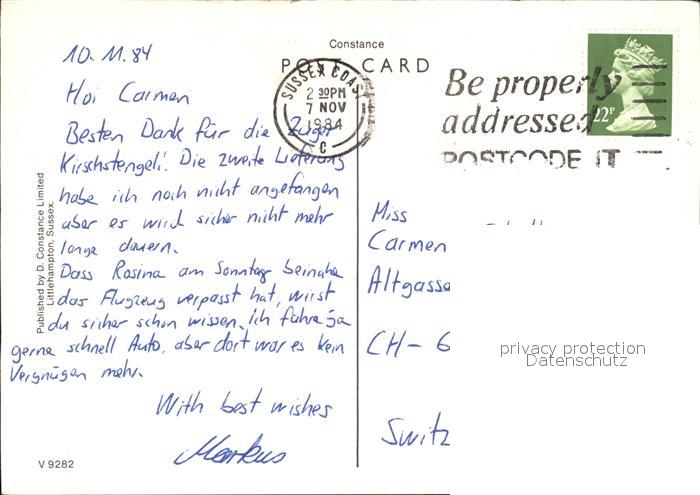 Constance
POST CARD
10. 11. 84
Hoi Carmen
Besten Dank für die Zuger
Kirschstengeli! Die zweite Lieferung
habe ich noch nicht angefangen
aber es wird sicher nicht mehr
lange dauern.
Dass Rosina am Sonntag beinahe
das Flugzeug verpasst hat, wirst
du sicher schon wissen. Ich fahre ja
gerne schnell Auto, aber dort war es kein
Vergnügen mehr.
With best wishes
Markus
V 9282
Published by D. Constance Limited
Littlehampton, Sussex.
SUSSEX COAST
2 30PM
7 NOV
1984
C
Be properly
addressed
POSTCODE IT
22P
Miss
Carmen
Altgasse
CH- 6
Switz
privacy protection
Datenschutz